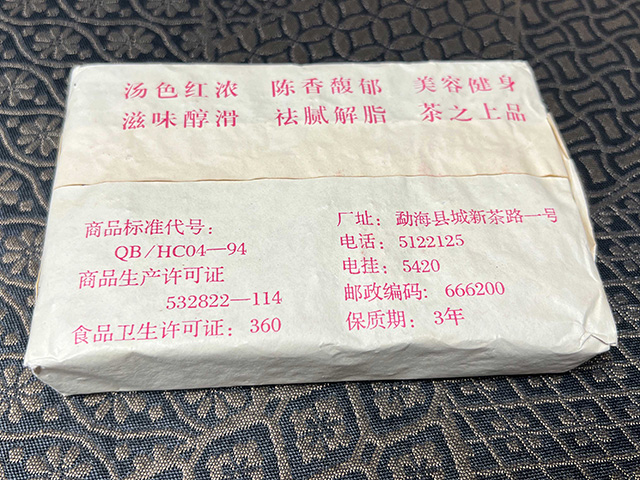 汤色红浓 陈香馥郁 美容健身
滋味醇滑 祛腻解脂 茶之上品
商品标准代号：
QB/HC04—94
商品生产许可证
532822—114
食品卫生许可证：360
厂址：勐海县城新茶路一号
电话：5122125
电挂：5420
邮政编码：666200
保质期：3年